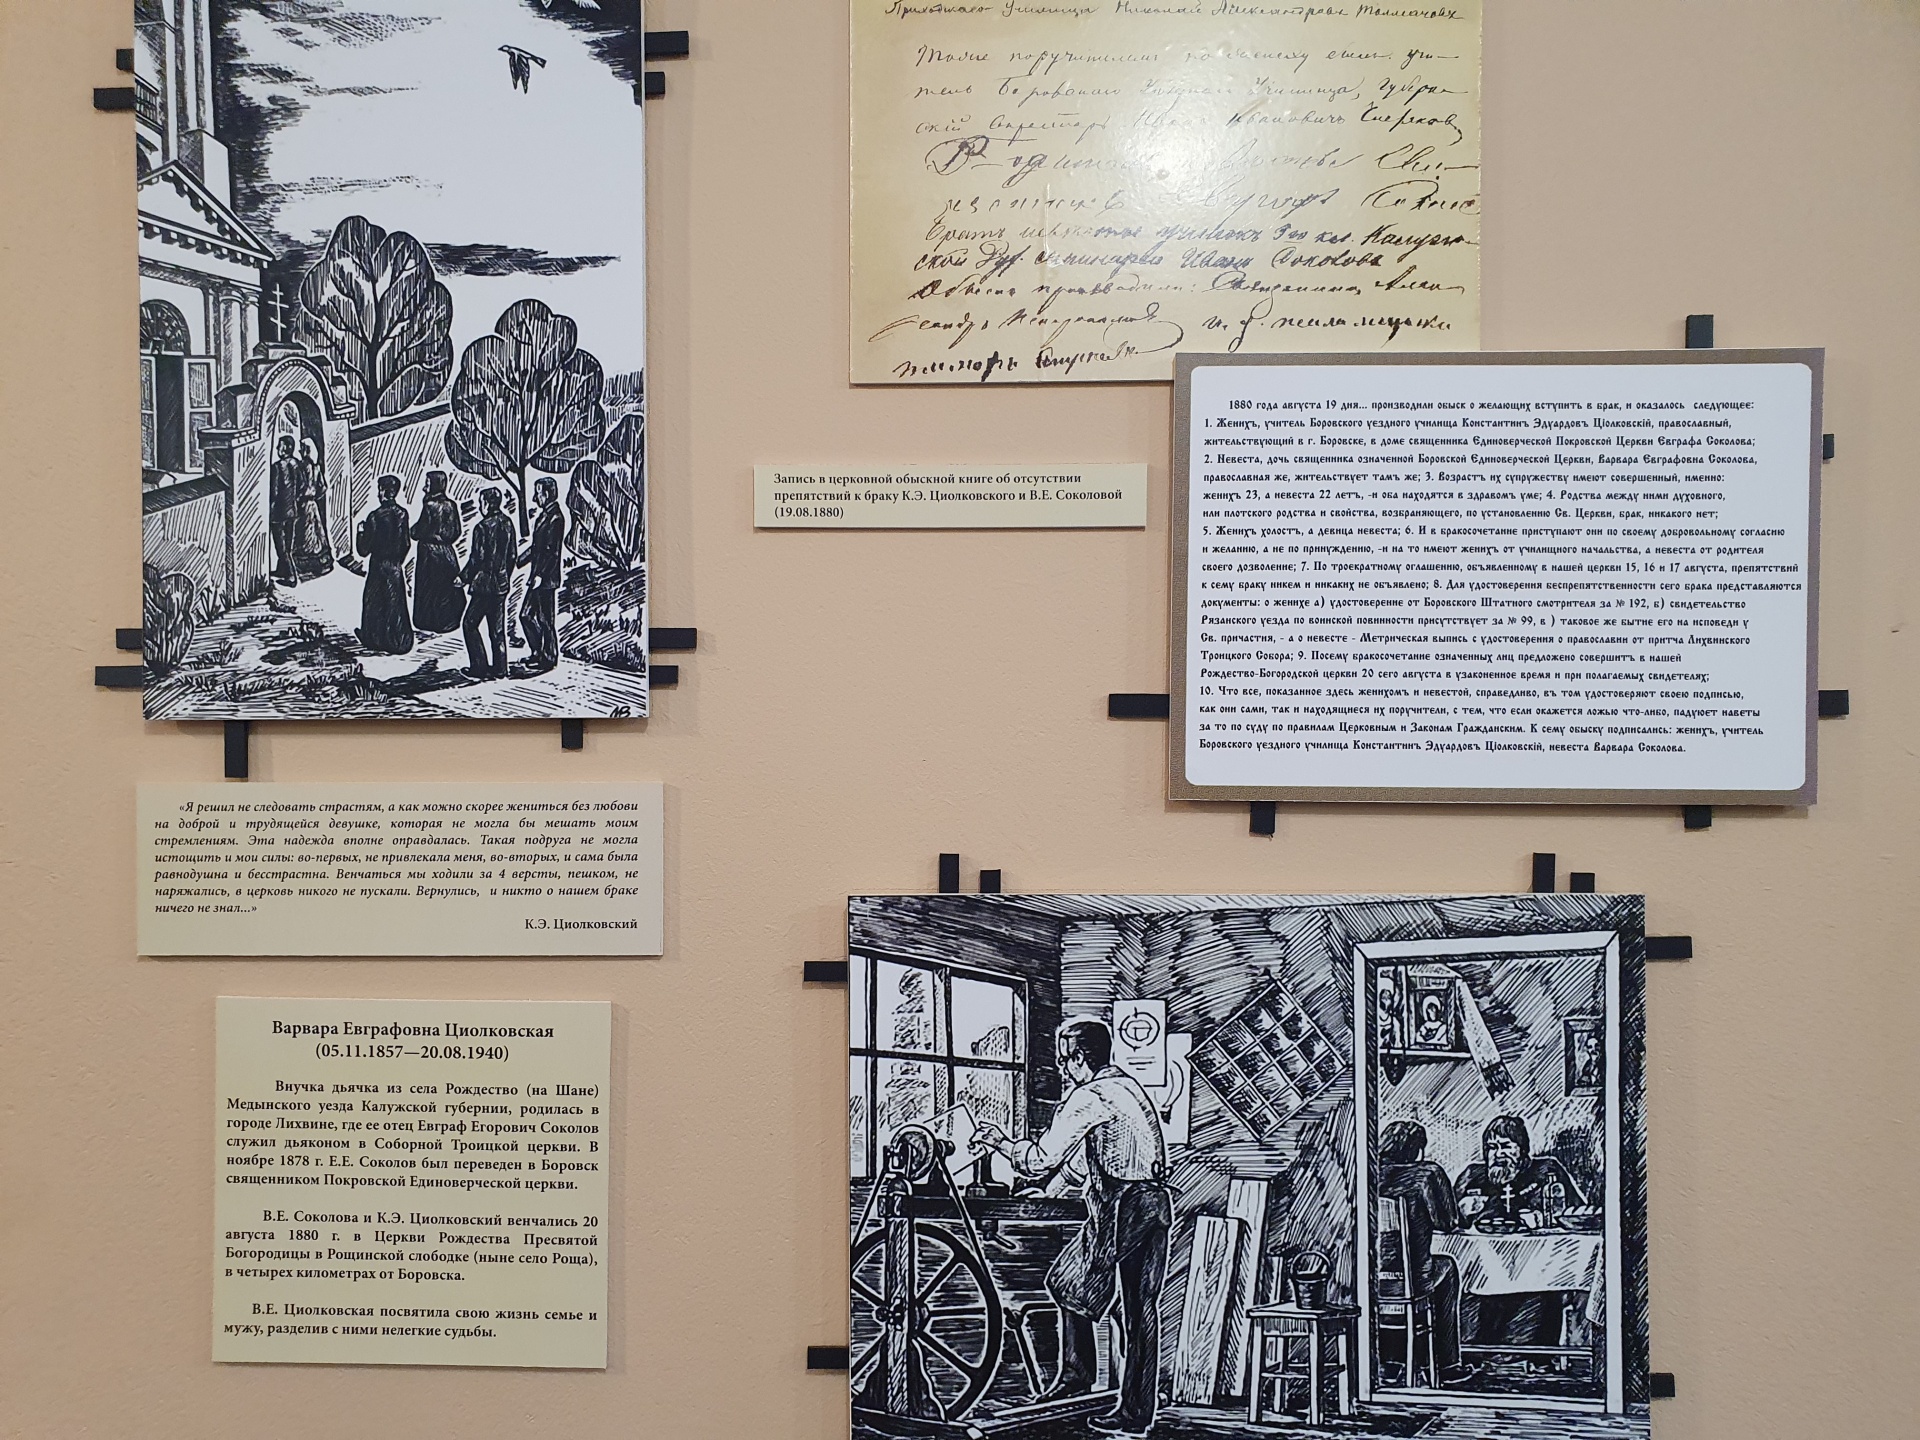 Также поручителем по жениху был учи-
тель Боровского Уездного Училища, Губерн-
ский Секретарь Иван Иванович
Братъ невесты ученикъ 3го кл. Калуж-
ской Дух. семинарии Иванъ Соколовъ
Обыскъ производили: Священникъ Алек-
Запись в церковной обыскной книге об отсутствии
препятствий к браку К.Э. Циолковского и В.Е. Соколовой
(19.08.1880)
1880 года августа 19 дня... производили обыск о желающих вступить в брак, и оказалось следующее:
1. Женихъ, учитель Боровского уездного училища Константинъ Эдуардовъ Ціолковскій, православный,
жительствующий в г. Боровске, в доме священника Единоверческой Покровской Церкви Евграфа Соколова;
2. Невеста, дочь священника означенной Боровской Единоверческой Церкви, Варвара Евграфовна Соколова,
православная же, жительствует тамъ же; 3. Возрастъ их супружеству имеют совершенный, именно:
женихъ 23, а невеста 22 летъ, -и оба находятся в здравомъ уме; 4. Родства между ними духовного,
или плотского родства и свойства, возбраняющего, по установлению Св. Церкви, брак, никакого нет;
5. Женихъ холостъ, а девица невеста; 6. И в бракосочетание приступают они по своему добровольному согласию
и желанию, а не по принуждению, -и на то имеют женихъ от училищного начальства, а невеста от родителя
своего дозволение; 7. По троекратному оглашению, объявленному в нашей церкви 15, 16 и 17 августа, препятствий
к сему браку никем и никаких не объявлено; 8. Для удостоверения беспрепятственности сего брака представляются
документы: о женихе а) удостоверение от Боровского Штатного смотрителя за № 192, б) свидетельство
Рязанского уезда по воинской повинности присутствует за № 99, в ) таковое же бытие его на исповеди у
Св. причастия, - а о невесте - Метрическая выпись с удостоверения о православии от притча Лихвинского
Троицкого Собора; 9. Посему бракосочетание означенных лиц предложено совершитъ в нашей
Рождество-Богородской церкви 20 сего августа в узаконенное время и при полагаемых свидетелях;
10. Что все, показанное здесь женихомъ и невестой, справедливо, въ том удостоверяют своею подписью,
как они сами, так и находящиеся их поручители, с тем, что если окажется ложью что-либо, падуюет наветы
за то по суду по правилам Церковным и Законам Гражданским. К сему обыску подписались: женихъ, учитель
Боровского уездного училища Константинъ Эдуардовъ Ціолковскій, невеста Варвара Соколова.
«Я решил не следовать страстям, а как можно скорее жениться без любови
на доброй и трудящейся девушке, которая не могла бы мешать моим
стремлениям. Эта надежда вполне оправдалась. Такая подруга не могла
истощить и мои силы: во-первых, не привлекала меня, во-вторых, и сама была
равнодушна и бесстрастна. Венчаться мы ходили за 4 версты, пешком, не
наряжались, в церковь никого не пускали. Вернулись, и никто о нашем браке
ничего не знал...»
К.Э. Циолковский
Варвара Евграфовна Циолковская
(05.11.1857—20.08.1940)
Внучка дьячка из села Рождество (на Шане)
Медынского уезда Калужской губернии, родилась в
городе Лихвине, где ее отец Евграф Егорович Соколов
служил дьяконом в Соборной Троицкой церкви. В
ноябре 1878 г. Е.Е. Соколов был переведен в Боровск
священником Покровской Единоверческой церкви.
В.Е. Соколова и К.Э. Циолковский венчались 20
августа 1880 г. в Церкви Рождества Пресвятой
Богородицы в Рощинской слободке (ныне село Роща),
в четырех километрах от Боровска.
В.Е. Циолковская посвятила свою жизнь семье и
мужу, разделив с ними нелегкие судьбы.